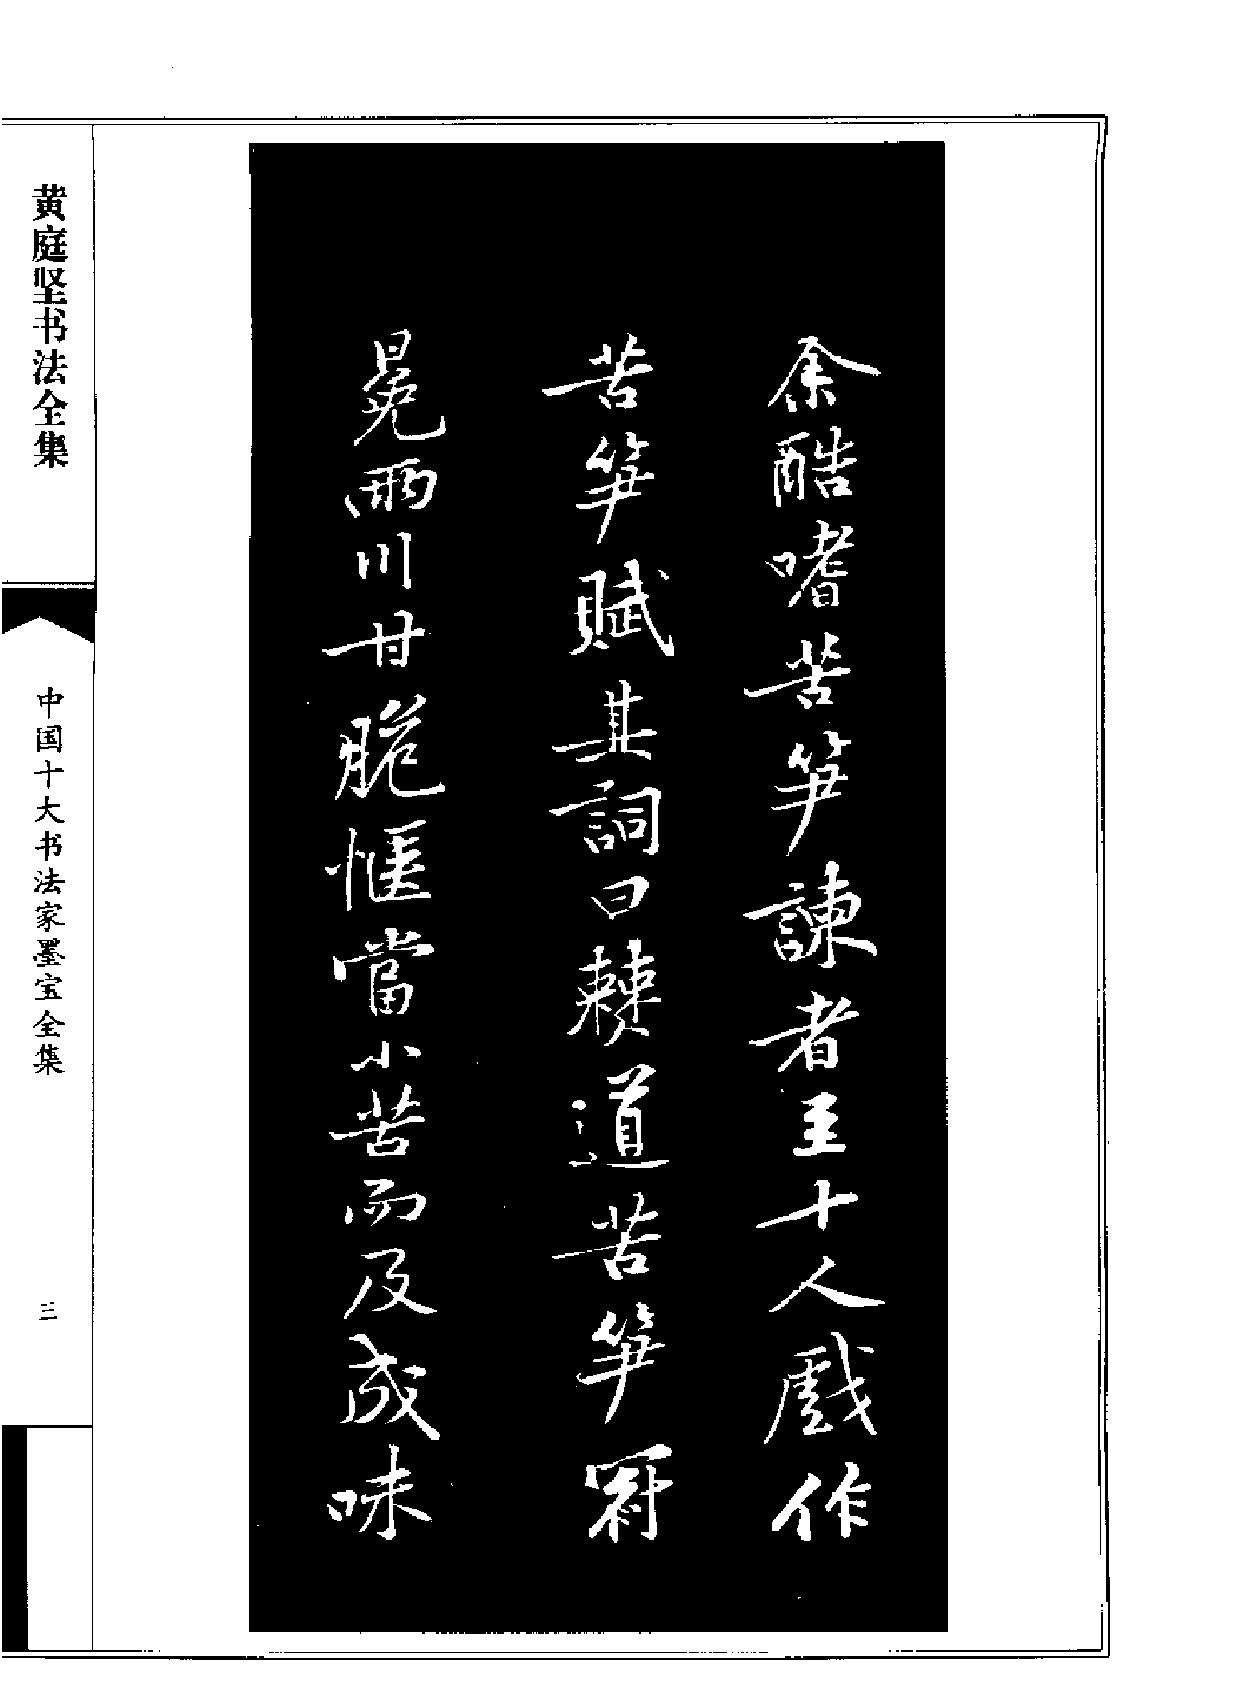 余酷嗜苦笋諫者至十人戲作
苦笋賦其詞曰僰道苦笋冠
冕兩川甘脆愜當小苦而及成味
黄庭坚书法全集
中国十大书法家墨宝全集
三